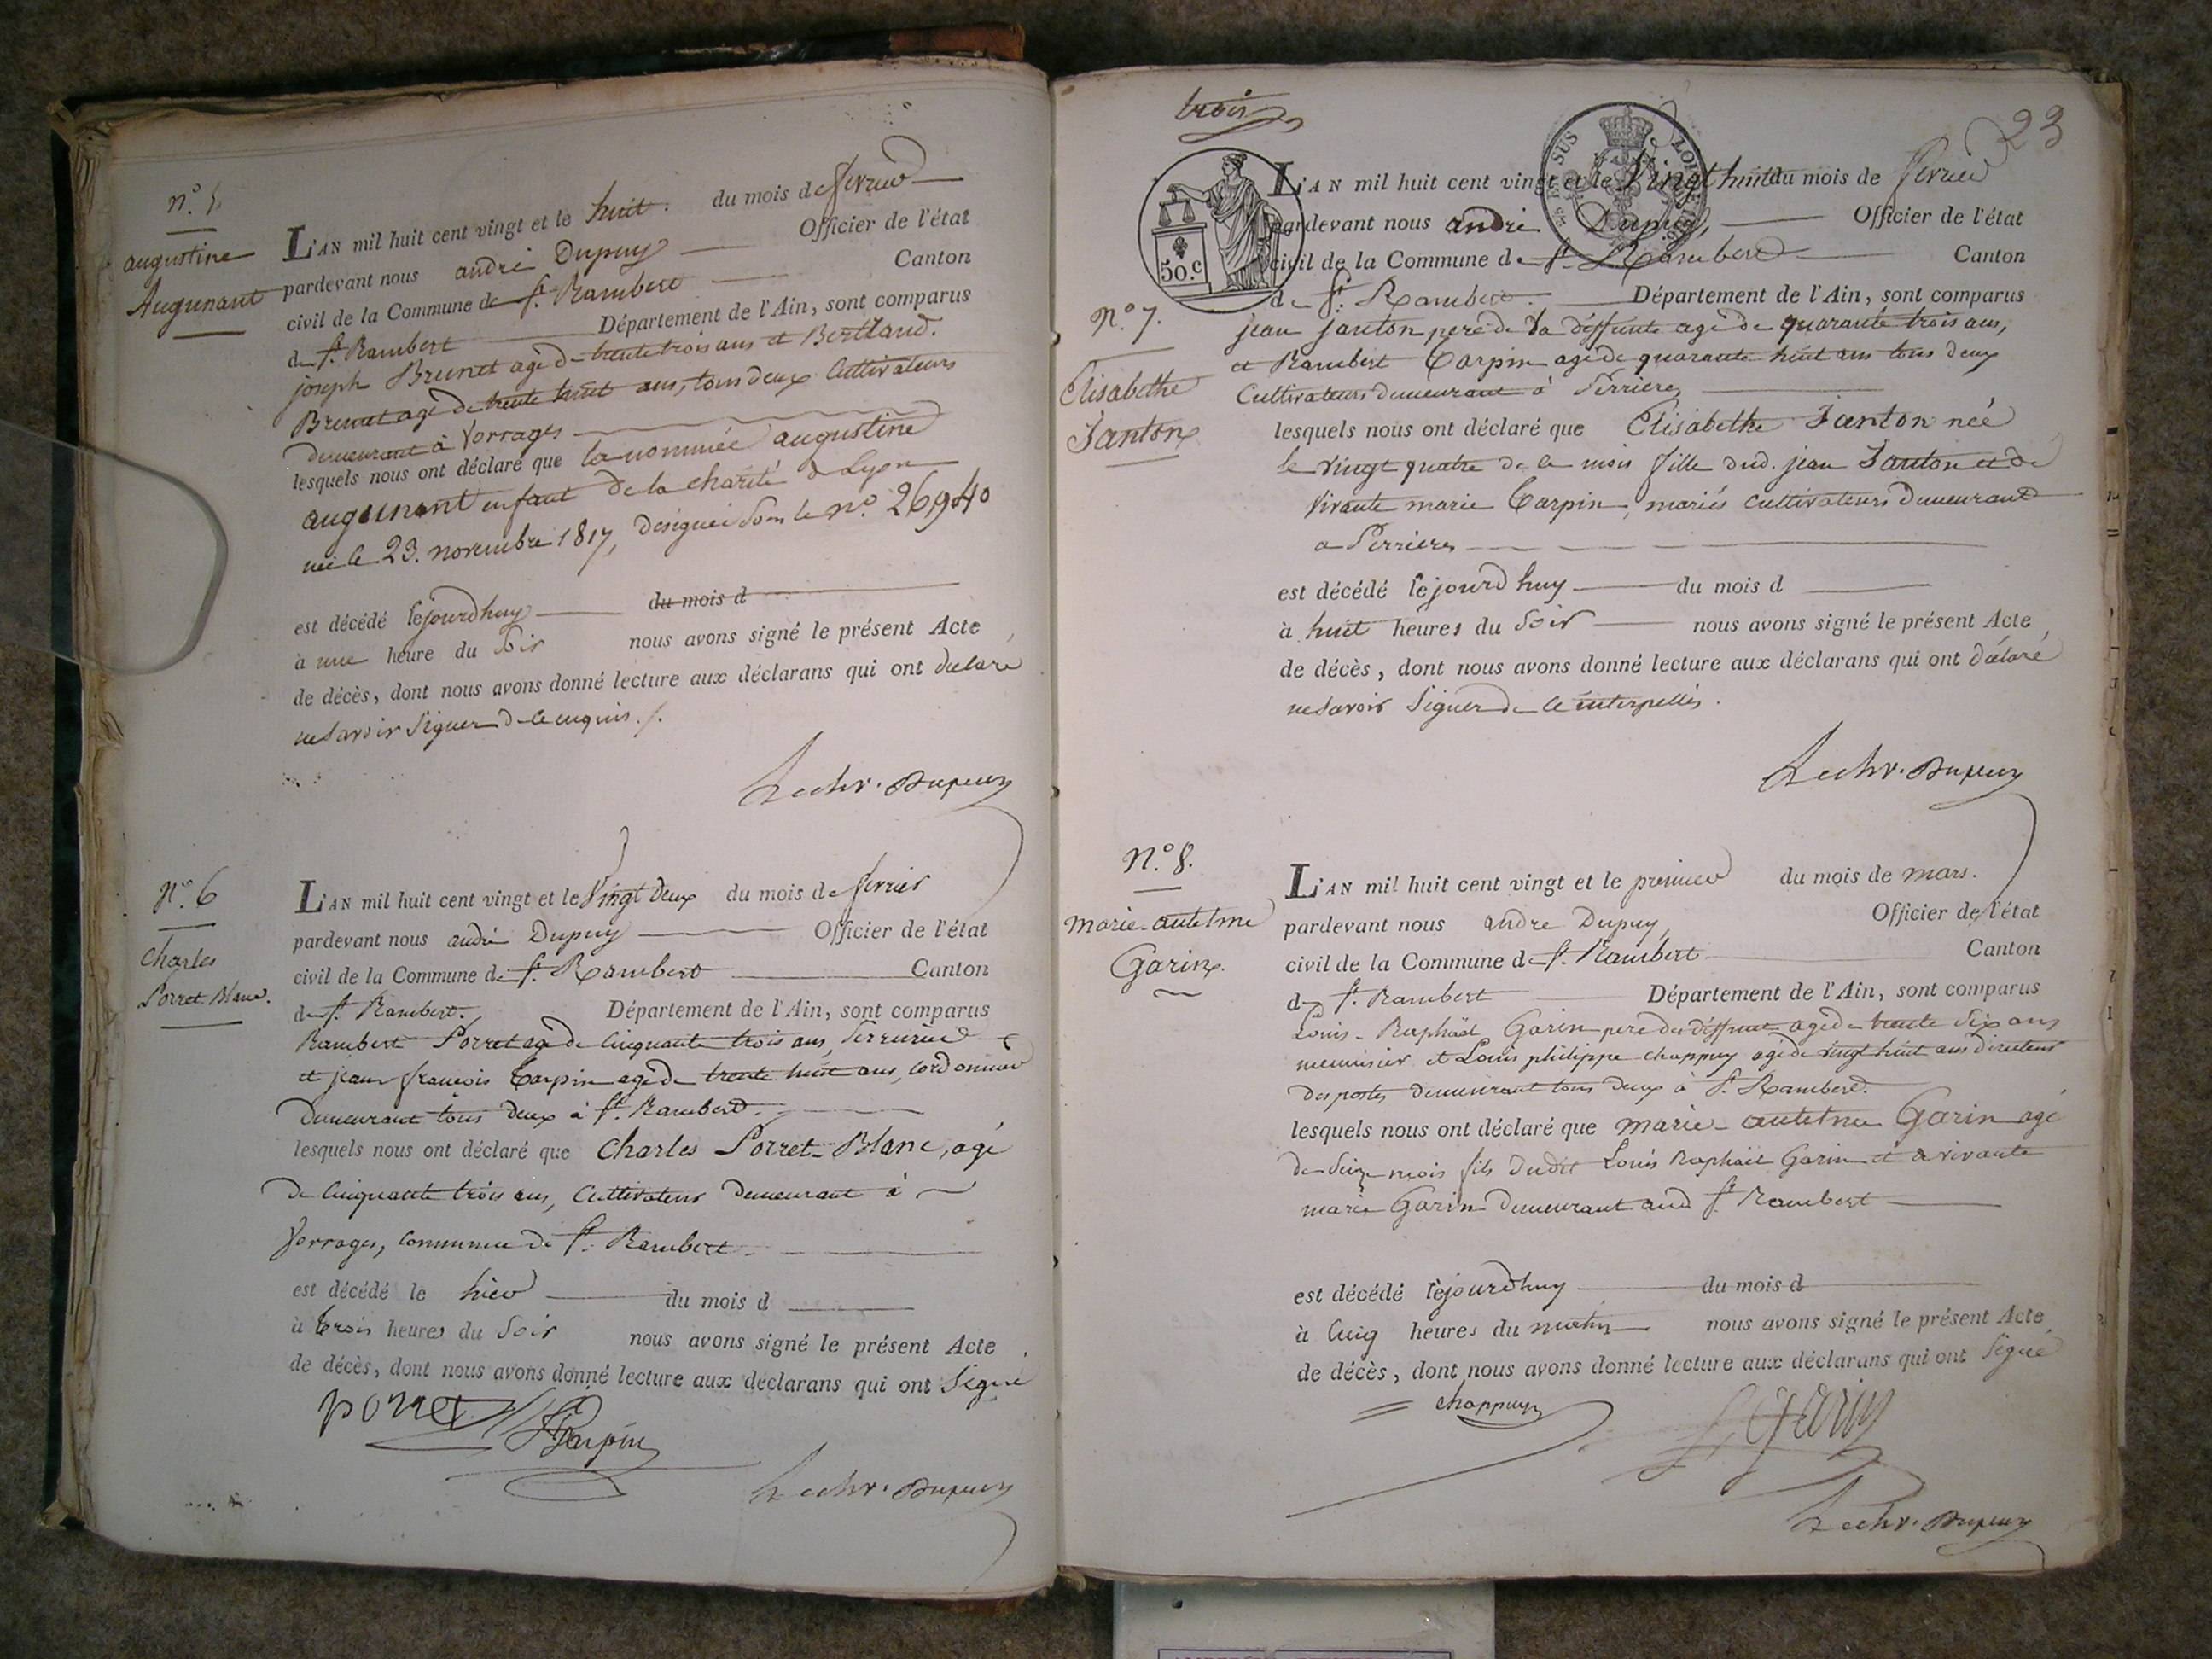 n.° 5
augustine
Augunant
L'AN mil huit cent vingt et le huit. du mois de fevrier
pardevant nous andré Dupuy Officier de l'état
civil de la Commune de St. Rambert Canton
de St. Rambert Département de l'Ain, sont comparus
joseph Brunet agé de trente trois ans et Berthaud.
Brunet agé de trente huit ans, tous deux Cultivateurs
demeurant à Vorrages
lesquels nous ont déclaré que la nommée augustine
augunant enfant de la charité de Lyon
née le 23. novembre 1817, designée sous le n.° 26940
est décédé lejourdhuy du mois d
à une heure du Soir nous avons signé le présent Acte
de décès, dont nous avons donné lecture aux déclarans qui ont déclaré
ne savoir signer de ce enquis.
Lechr. Dupuy
N.° 6
Charles
Porret Blanc.
L'AN mil huit cent vingt et le Vingt deux du mois de fevrier
pardevant nous andré Dupuy Officier de l'état
civil de la Commune de St. Rambert Canton
de St. Rambert. Département de l'Ain, sont comparus
Rambert Porret agé de Cinquante trois ans, Serrurier
et jean françois Carpin agé de trente huit ans, cordonnier
demeurant tous deux à St. Rambert.
lesquels nous ont déclaré que Charles Porret-Blanc, agé
de Cinquante trois ans, Cultivateur demeurant à
Vorrages, commune de St. Rambert
est décédé le hier du mois d
à trois heures du Soir nous avons signé le présent Acte
de décès, dont nous avons donné lecture aux déclarans qui ont Signé
porret Carpin
Lechr. Dupuy
trois
23
50.c
N.° 7.
Elisabethe
Janton
L'AN mil huit cent vingt et le Vingt huit du mois de fevrier
pardevant nous andré Dupuy, Officier de l'état
civil de la Commune de St. Rambert Canton
de St. Rambert. Département de l'Ain, sont comparus
jean janton pere de la deffunte agé de quarante trois ans,
et Rambert Carpin agé de quarante huit ans tous deux
Cultivateurs demeurant à Serrieres
lesquels nous ont déclaré que Elisabethe Janton née
le vingt quatre de ce mois fille dud. jean Janton et de
vivante marie Carpin, mariés cultivateurs demeurant
a Serrieres
est décédé lejourd huy du mois d
à huit heures du Soir nous avons signé le présent Acte
de décès, dont nous avons donné lecture aux déclarans qui ont déclaré
ne savoir signer de ce interpellés.
Lechr. Dupuy
N.° 8.
marie-antelme
Garin.
L'AN mil huit cent vingt et le premier du mois de mars.
pardevant nous andre Dupuy, Officier de l'état
civil de la Commune de St. Rambert Canton
de St. Rambert Département de l'Ain, sont comparus
Louis-Raphaël Garin pere du deffunt agé de trente six ans
menuisier et Louis philippe chappuy agé de vingt huit ans directeur
des postes demeurant tous deux à St. Rambert.
lesquels nous ont déclaré que marie-antelme Garin agé
de Seize mois fils dudit Louis Raphaël Garin et a vivante
marie Garin demeurant aud St. Rambert
est décédé lejourdhuy du mois d
à Cinq heures du matin nous avons signé le présent Acte
de décès, dont nous avons donné lecture aux déclarans qui ont Signé
chappuy Garin
Lechr. Dupuy